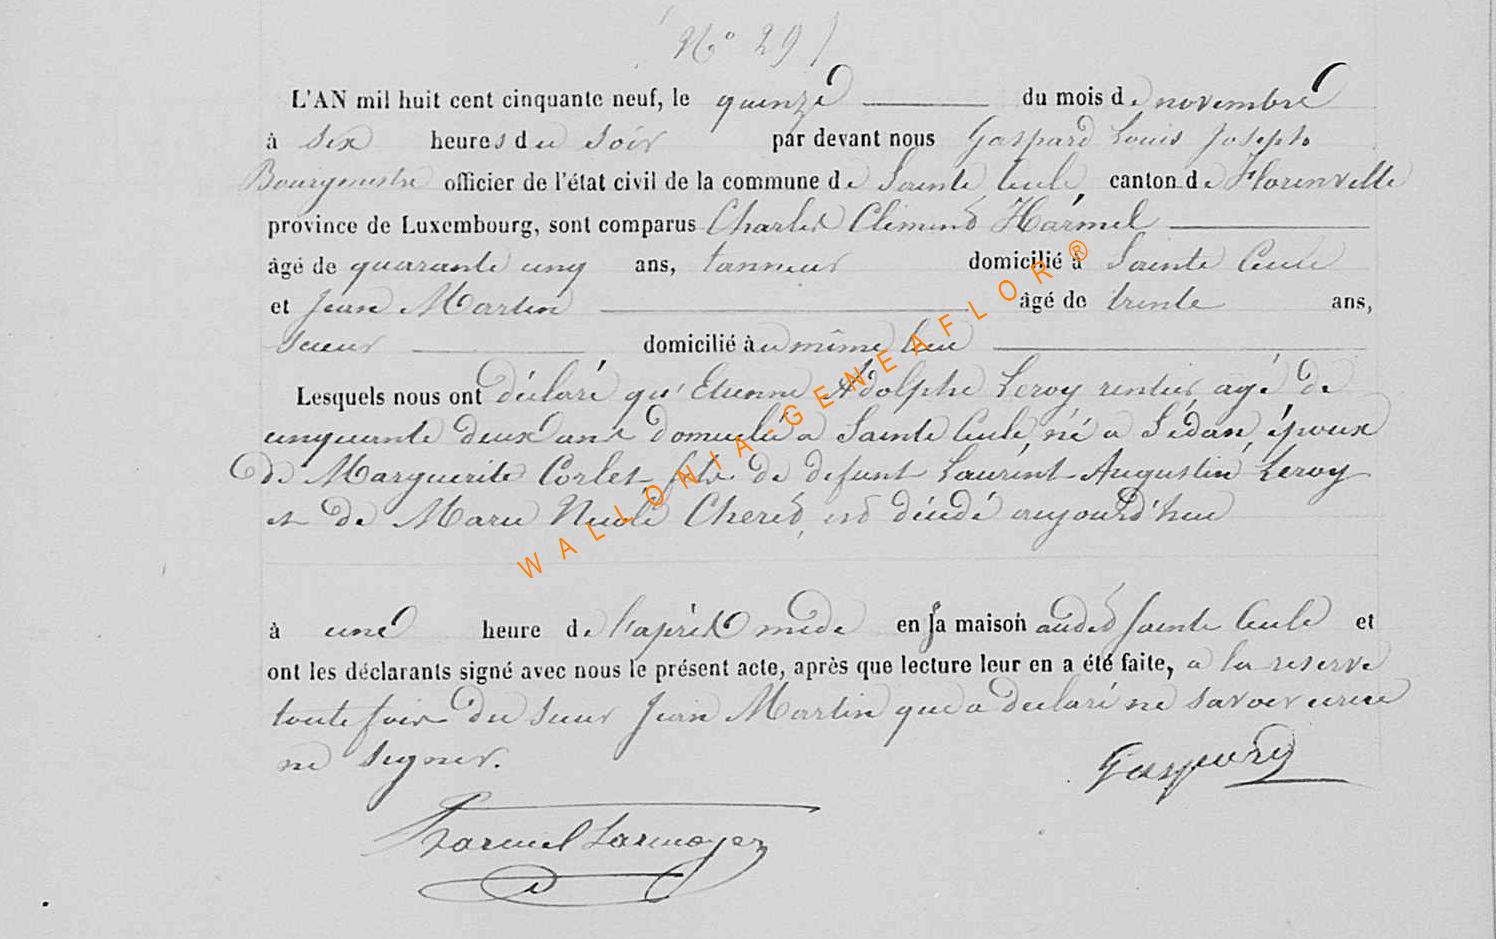 N° 29
L'AN mil huit cent cinquante neuf, le quinze du mois de novembre
à six heures du soir par devant nous Gaspard Louis Joseph
Bourgmestre officier de l'état civil de la commune de Sainte Cecile, canton de Florenville
province de Luxembourg, sont comparus Charles Clément Harmel
âgé de quarante cinq ans, tanneur domicilié à Sainte Cecile
et Jean Martin âgé de trente ans,
scieur domicilié au même lieu
Lesquels nous ont déclaré qu'Etienne Adolphe Leroy rentier, agé de
cinquante deux ans domicilié a Sainte Cecile, né a Sédan, époux
de Marguerite Corlet fils de defunt Laurent Augustin Leroy
et de Marie Nicole Chered, est décédé aujourd'hui
à une heure de l'après midi en sa maison audit Sainte Cecile et
ont les déclarants signé avec nous le présent acte, après que lecture leur en a été faite, a la reserve
toutefois du sieur Jean Martin qui a declaré ne savoir ecrire
ni signer.
Gaspard
Harmel Larmoyer
WALLONIA-GENEAFLOR®